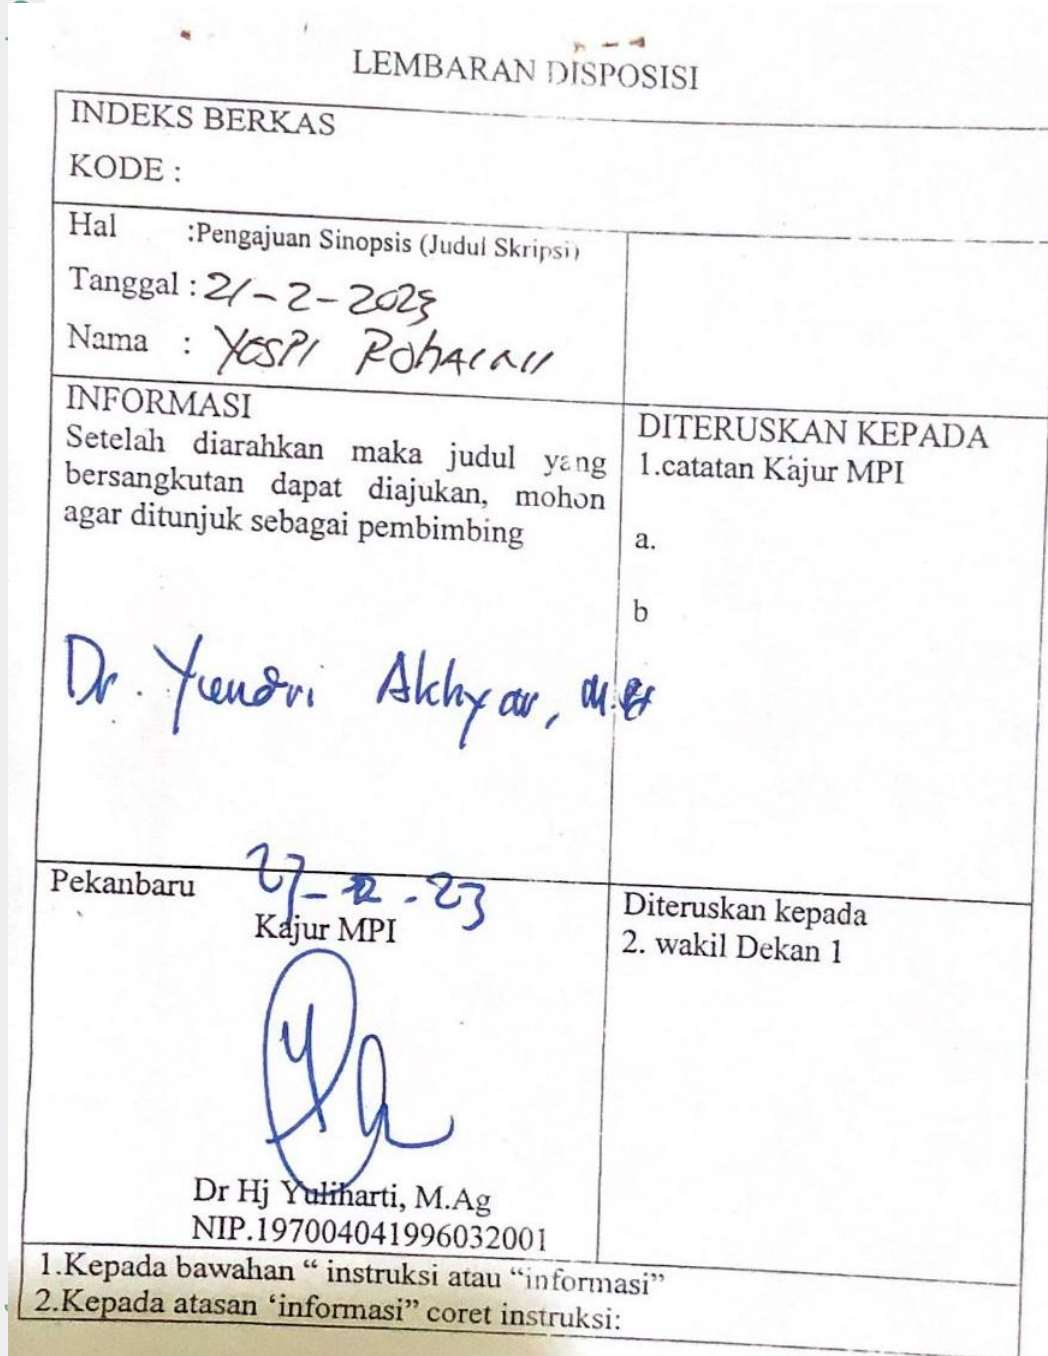 LEMBARAN DISPOSISI
INDEKS BERKAS
KODE :
Hal :Pengajuan Sinopsis (Judul Skripsi)
Tanggal : 21-2-2023
Nama :
INFORMASI
Setelah diarahkan maka judul yang
bersangkutan dapat diajukan, mohon
agar ditunjuk sebagai pembimbing
Dr. Yundri Akhyar,
DITERUSKAN KEPADA
1.catatan Kajur MPI
a.
b
Pekanbaru
Kajur MPI
Dr Hj Yuliharti, M.Ag
NIP.197004041996032001
Diteruskan kepada
2. wakil Dekan 1
1.Kepada bawahan “ instruksi atau “informasi”
2.Kepada atasan ‘informasi” coret instruksi: